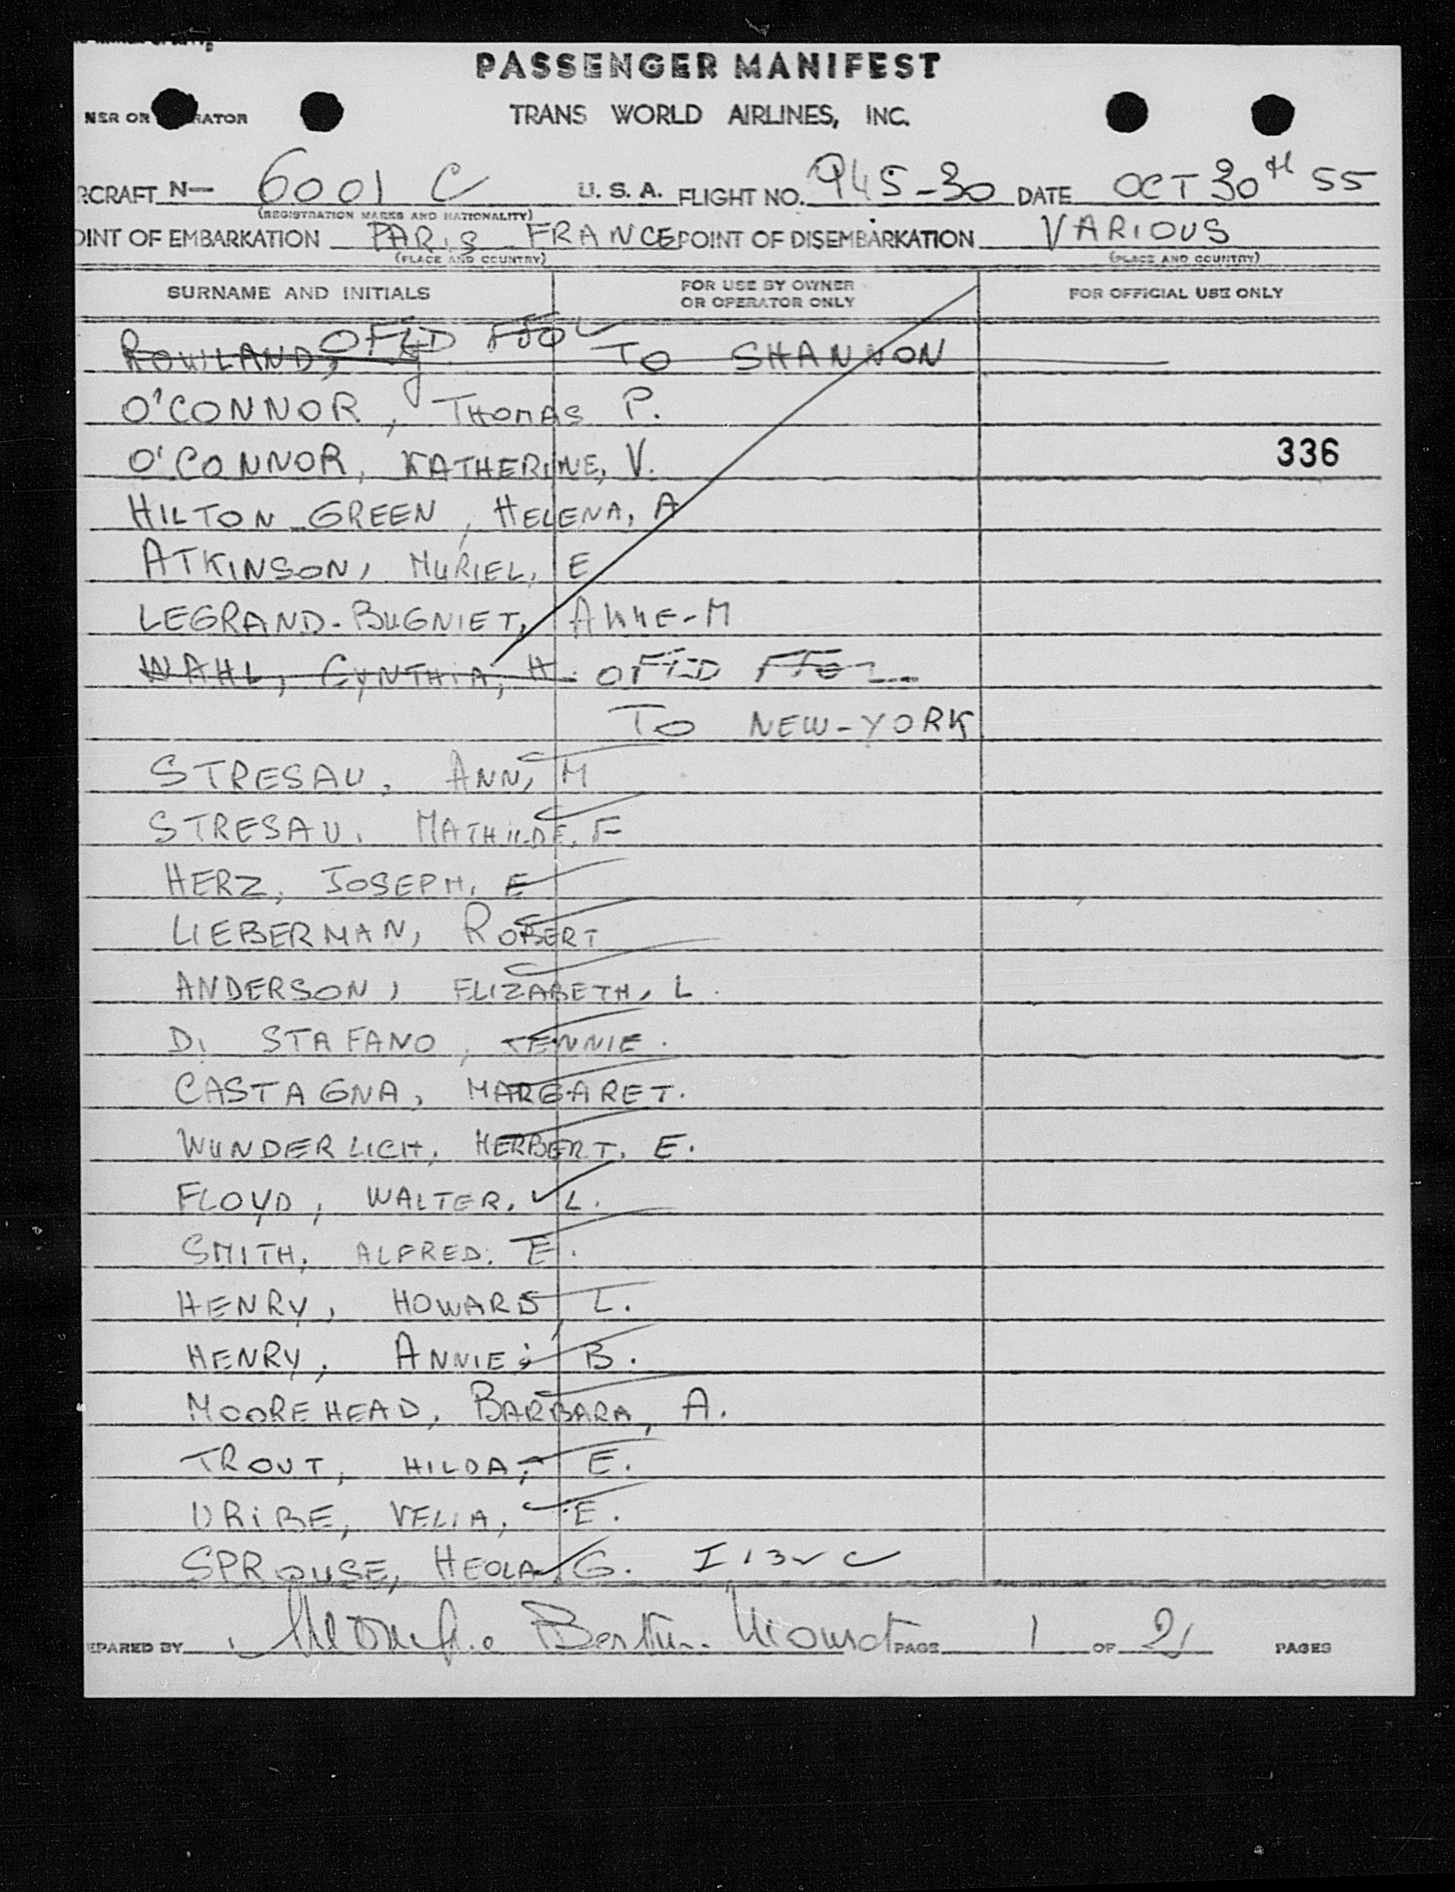 PASSENGER MANIFEST
TRANS WORLD AIRLINES, INC.
RCRAFT N— 6001 C U. S. A. FLIGHT NO. 945-30 DATE OCT 30th 55
(REGISTRATION MARKS AND NATIONALITY)
OINT OF EMBARKATION PARIS FRANCE POINT OF DISEMBARKATION VARIOUS
(PLACE AND COUNTRY) (PLACE AND COUNTRY)
SURNAME AND INITIALS FOR USE BY OWNER OR OPERATOR ONLY FOR OFFICIAL USE ONLY
ROWLAND, TO SHANNON
O'CONNOR, THOMAS P.
O'CONNOR, KATHERINE, V. 336
HILTON GREEN, HELENA, A
ATKINSON, MURIEL, E
LEGRAND-BUGNIET, ANNE-M
WAHL, CYNTHIA, H.
TO NEW-YORK
STRESAU, ANN, M
STRESAU, MATHILDE, F
HERZ, JOSEPH, E
LIEBERMAN, ROBERT
ANDERSON, ELIZABETH, L.
DI STAFANO, JENNIE.
CASTAGNA, MARGARET.
WUNDERLICH, HERBERT, E.
FLOYD, WALTER, L.
SMITH, ALFRED. E.
HENRY, HOWARD L.
HENRY, ANNIE, B.
MOOREHEAD, BARBARA, A.
TROUT, HILDA, E.
URIBE, VELIA, E.
SPROUSE, HEOLA G.
EPARED BY PAGE 1 OF 2 PAGES